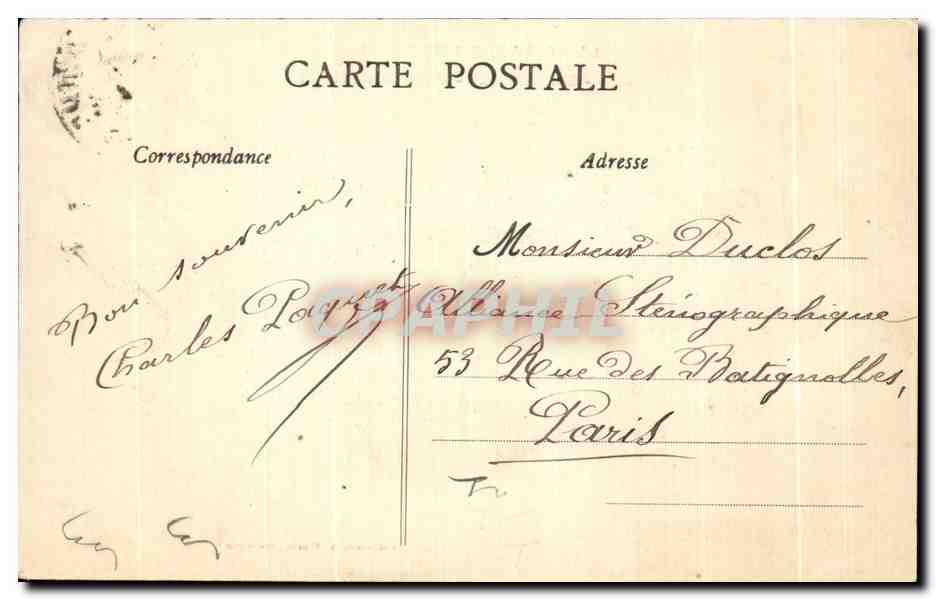 CARTE POSTALE
Correspondance
Adresse
Bon souvenir,
Charles Paquet
Monsieur Duclos
Alliance Sténographique
53 Rue des Batignolles,
Paris
CPAPHIL